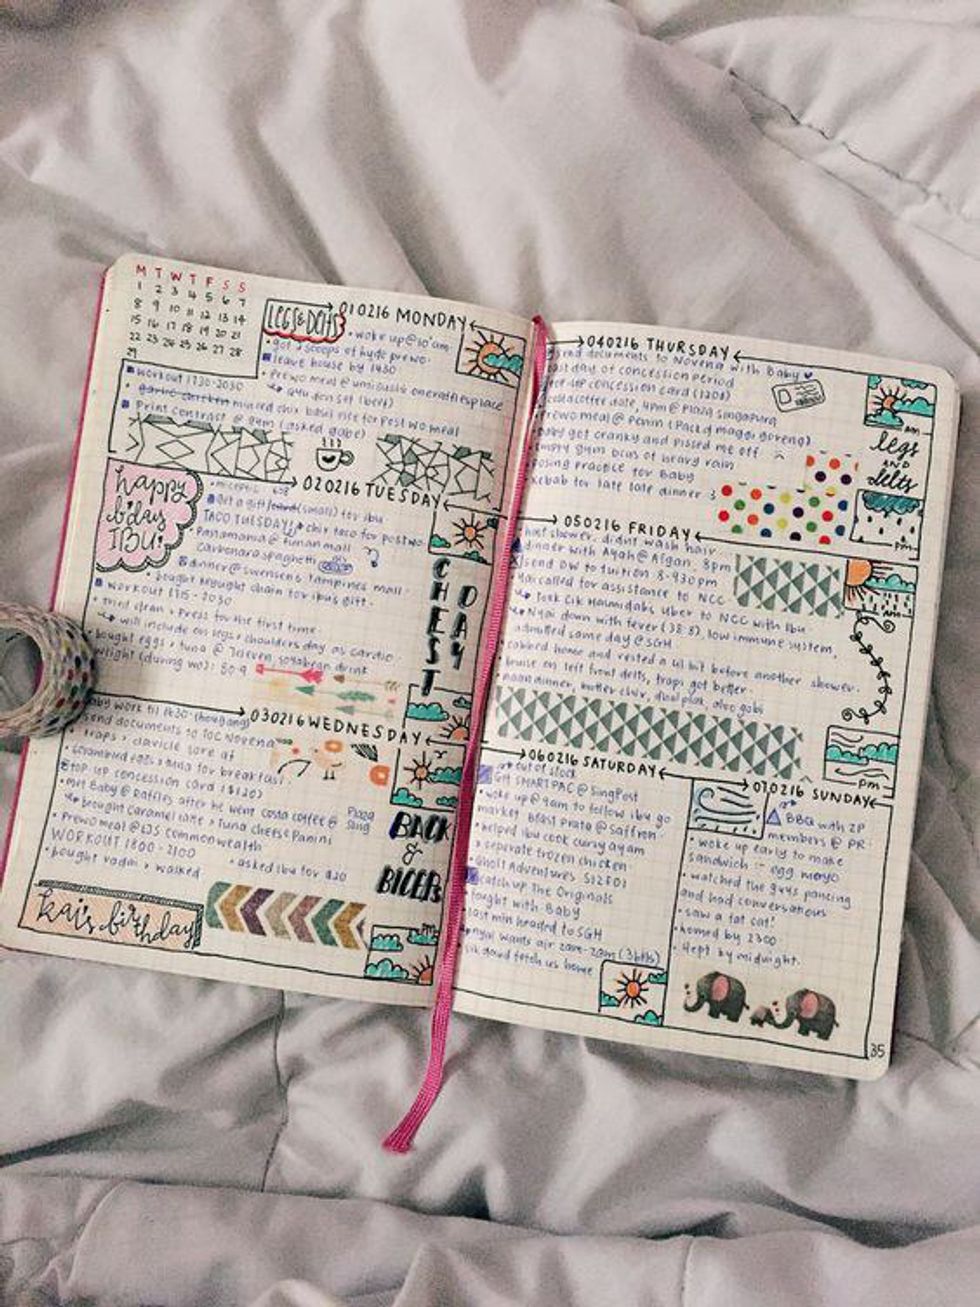 M T W T F S S
1 2 3 4 5 6 7
8 9 10 11 12 13 14
15 16 17 18 19 20 21
22 23 24 25 26 27 28
29
LEGS & DELTS
010216 MONDAY
• woke up @ 10am
• got 2 scoops of hyde prewo.
leave house by 1430
• Prewo meal @ umisushi oneraffles place
↳ gyu don set (beef)
workout 1730-2030
• garlic chicken minced chix basil rice for post wo meal
Print contract @ gym (asked gabe)
020216 TUESDAY
happy
b'day
IBU!
get a gift (small) for ibu
TACO TUESDAY! ↳ chix taco for postwo
Panamania @ funan mall
carbonara spaghetti
dinner @ swensens tampines mall.
• bought keyught chain for ibus gift.
WORKOUT 1715-2030
• tried clean & press for the first time.
↳ will include on legs & shoulders day as cardio.
• bought eggs & tuna @ 7eleven, soyabean drink
CHEST DAY
030216 WEDNESDAY
send documents to TOC Novena
• traps & clavicle sore af
• scrambled eggs & tuna for breakfast
top up concession card ($120)
• met Baby @ Raffles after he went costa coffee @ Plaza Sing
↳ bought caramel latte & tuna cheese Panini
• prewo meal @ LJS commonwealth
WORKOUT 1800-2100
• asked ibu for $20
• bought & walked
BACK
&
BICEPS
kai's birthday
PM
040216 THURSDAY
send documents to Novena with Baby
last day of concession period
top up concession card (120$)
costa coffee date, 4pm @ Plaza Singapura
prewo meal @ Penin (Pack of maggi goreng)
baby got cranky and pissed me off
• empty gym bcus of heavy rain
• posing practice for Baby
kebab for late late dinner :3
PM
legs
AND
delts
PM
050216 FRIDAY
hot shower. didnt wash hair
dinner with Ayah @ Afgan. 8pm
send DW to tuition 8-930pm
Yai called for assistance to NCC
↳ Took Cik Hamidahs Uber to NCC with Ibu
↳ Nyai down with fever (38.8), low immune system,
admitted same day @ SGH
• cabbed home and rested a lil bit before another shower.
• bruise on left front delts, traps got better.
• naan dinner, butter chix, dhal, aloo gobi
AM
PM
060216 SATURDAY
↱ out of stock
GH SMARTPAC @ SingPost
• woke up @ 9am to follow ibu go
market. Bkfst prata @ saffron
• helped ibu cook curry ayam
> seperate frozen chicken
• Ghost Adventures S12E01
catch up The Originals
fought with Baby
last min headed to SGH
• nyai wants air 2am-7am (3btls)
cik daud fetch us home
070216 SUNDAY
BBQ with 2P
members @ PR
• woke up early to make
sandwich :- egg mayo
• watched the guys pancing
and had conversations
• saw a fat cat!
• homed by 2300
• slept by midnight.
35